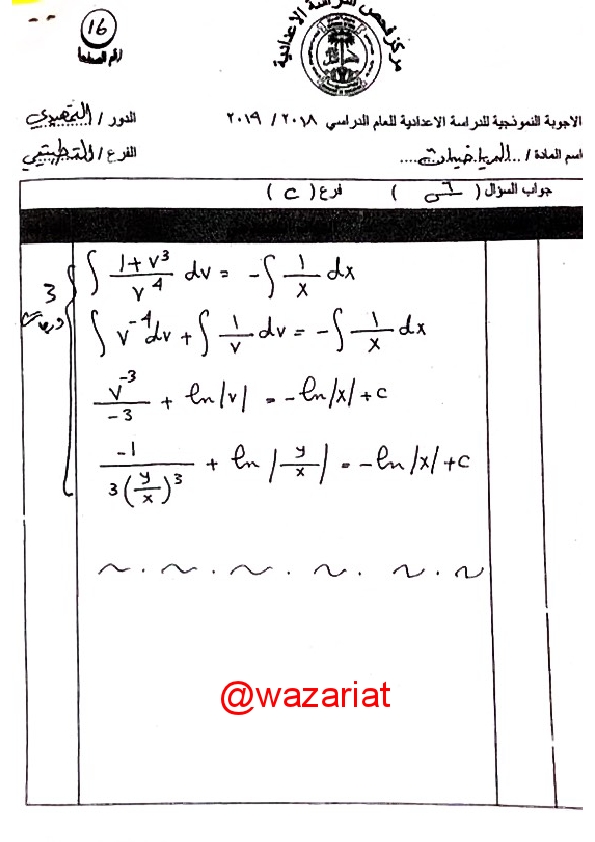 16
رقم الصفحة
مركز فحص الدراسة الاعدادية
الاجوبة النموذجية للدراسة الاعدادية للعام الدراسي ٢٠١٨ / ٢٠١٩
الدور / التمهيدي
اسم المادة / ..الرياضيات....
الفرع / التطبيقي
جواب السؤال ( س٦ ) فرع ( C )
3 درجات
∫ (1+v³)/v⁴ dv = -∫ 1/x dx
∫ v⁻⁴ dv + ∫ 1/v dv = -∫ 1/x dx
v⁻³/-3 + ln|v| = -ln|x| + c
-1/(3(y/x)³) + ln|y/x| = -ln|x| + c
@wazariat